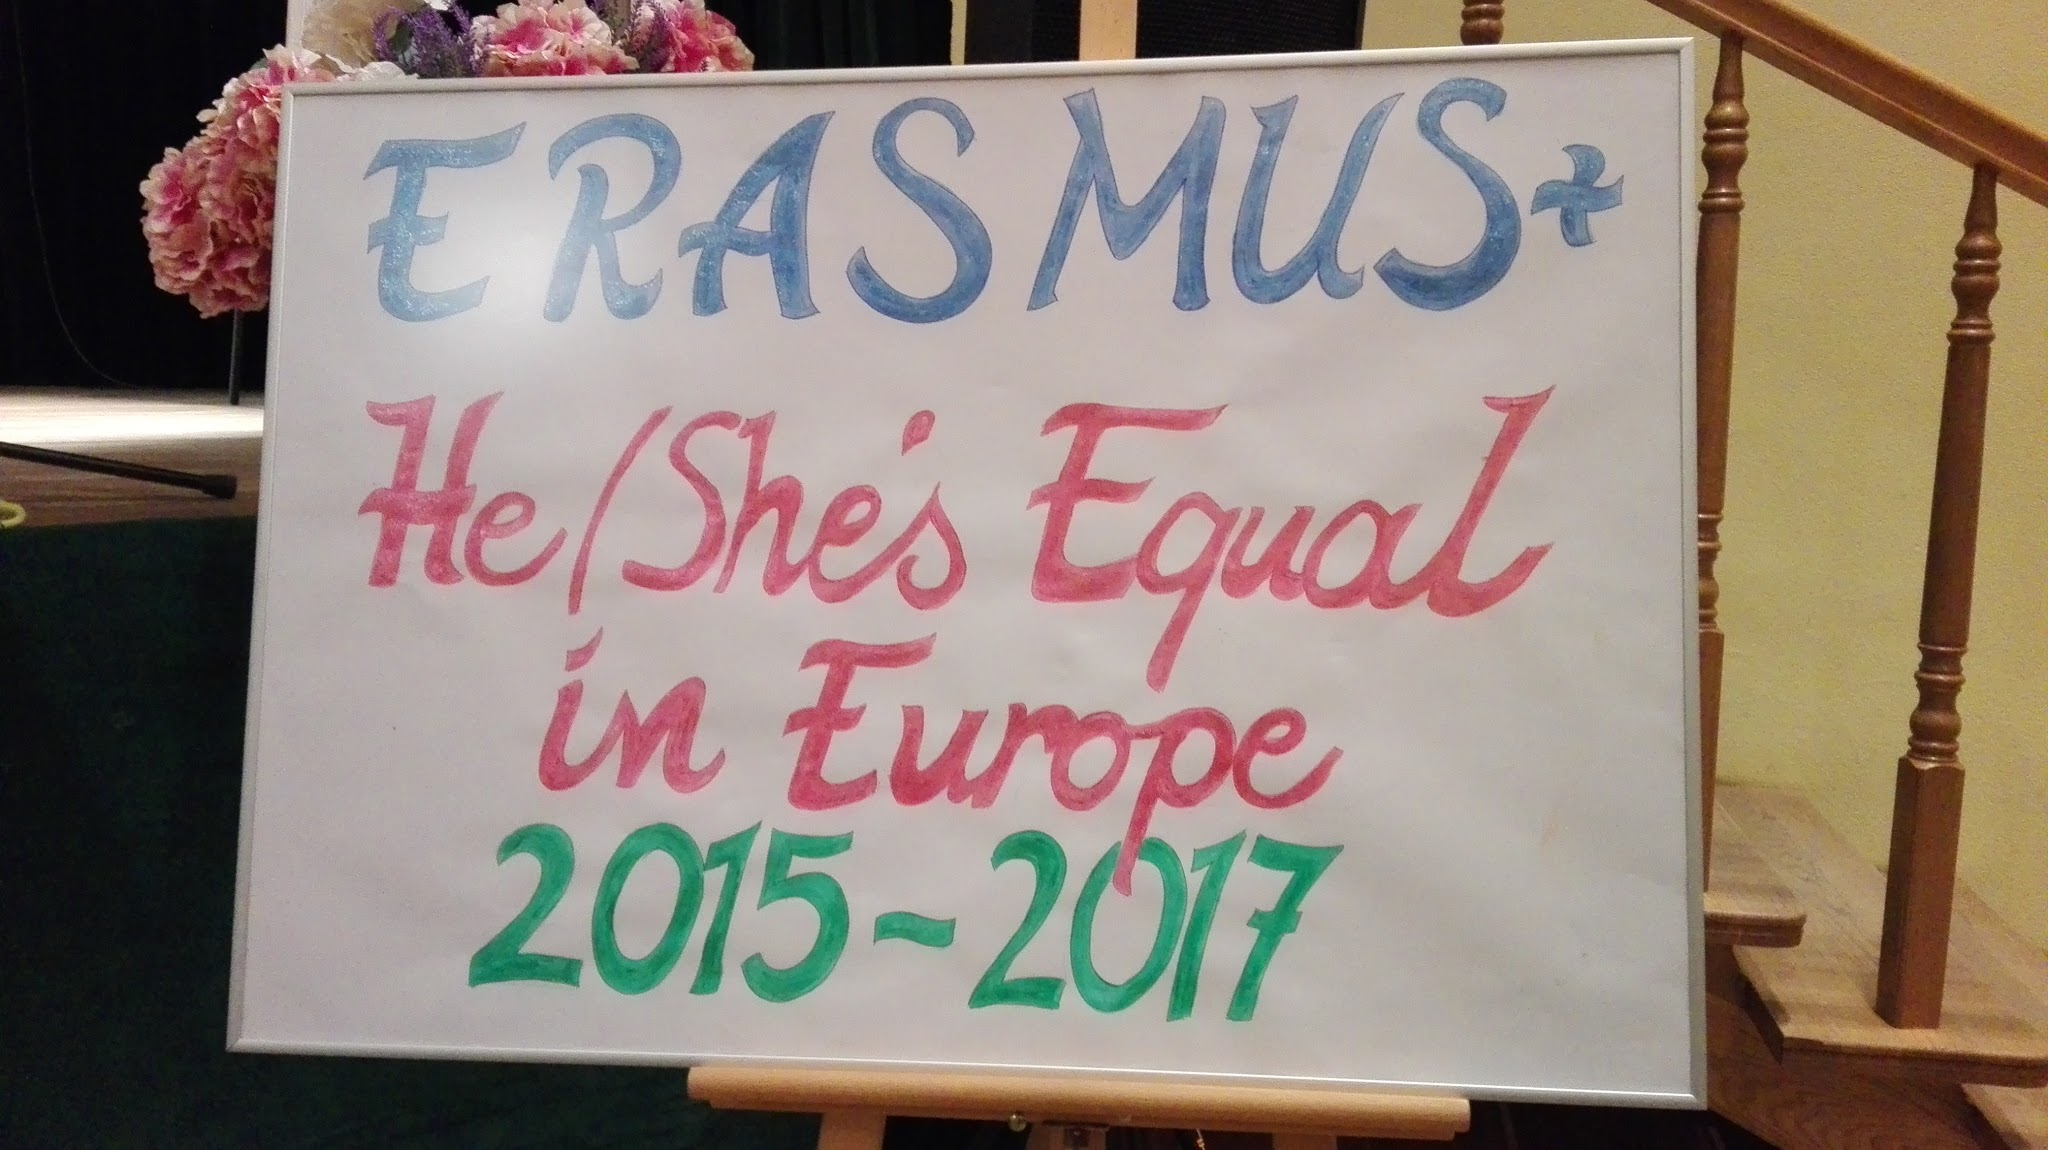 ERASMUS+
He/She's Equal
in Europe
2015-2017